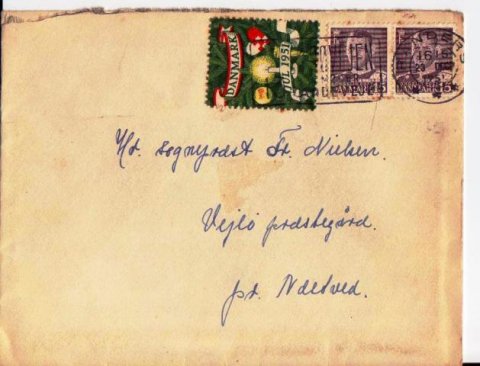 DANMARK
JUL 1951
Hr. sognepræst Fr. Nielsen.
Vejlø præstegård.
pr. Næstved.